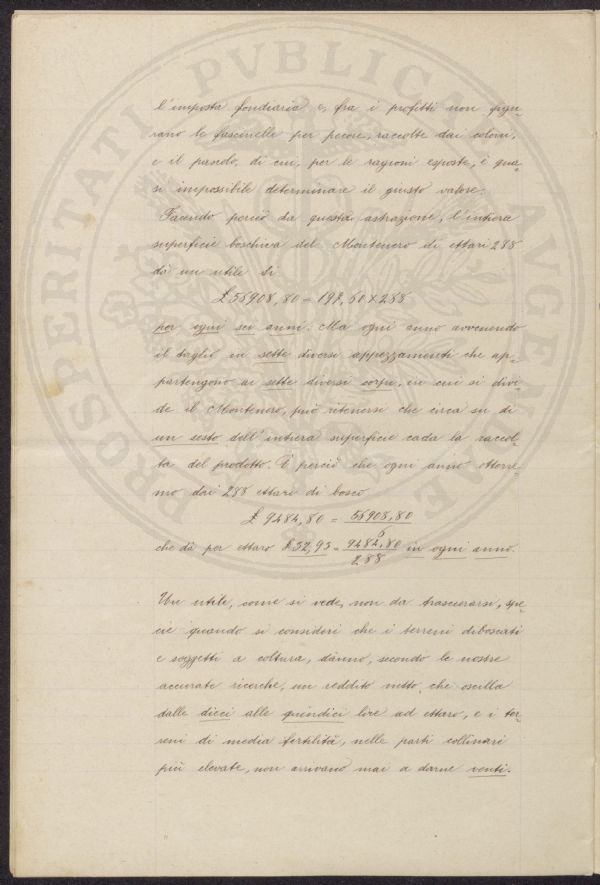 l'imposta fondiaria e, fra i profitti non figu-
rano le fascinelle per pecore, raccolte dai coloni,
e il pascolo, di cui, per le ragioni esposte, è qua-
si impossibile determinare il giusto valore.
Facendo perciò da questa astrazione, l'intiera
superficie boschiva del Montenero di ettari 288
dà un utile di
£ 56908,80 = 197,60 x 288
per ogni sei anni. Ma ogni anno avvenendo
il taglio in sette diversi appezzamenti che ap-
partengono ai sette diversi corpi, in cui si divi-
de il Montenero, può ritenersi che circa su di
un sesto dell'intiera superficie cada la raccol-
ta del prodotto. È perciò che ogni anno otterre-
mo dai 288 ettari di bosco
£ 9484,80 = 56908,80 / 6
che dà per ettaro £ 32,93 = 9484,80 / 288 in ogni anno.
Un utile, come si vede, non da trascurarsi, spe-
cie quando si consideri che i terreni diboscati
e soggetti a coltura, dànno, secondo le nostre
accurate ricerche, un reddito netto, che oscilla
dalle dieci alle quindici lire ad ettaro, e i ter-
reni di media fertilità, nelle parti collinari
più elevate, non arrivano mai a darne venti.
PROSPERITATI PVBLICAE AVGENDAE